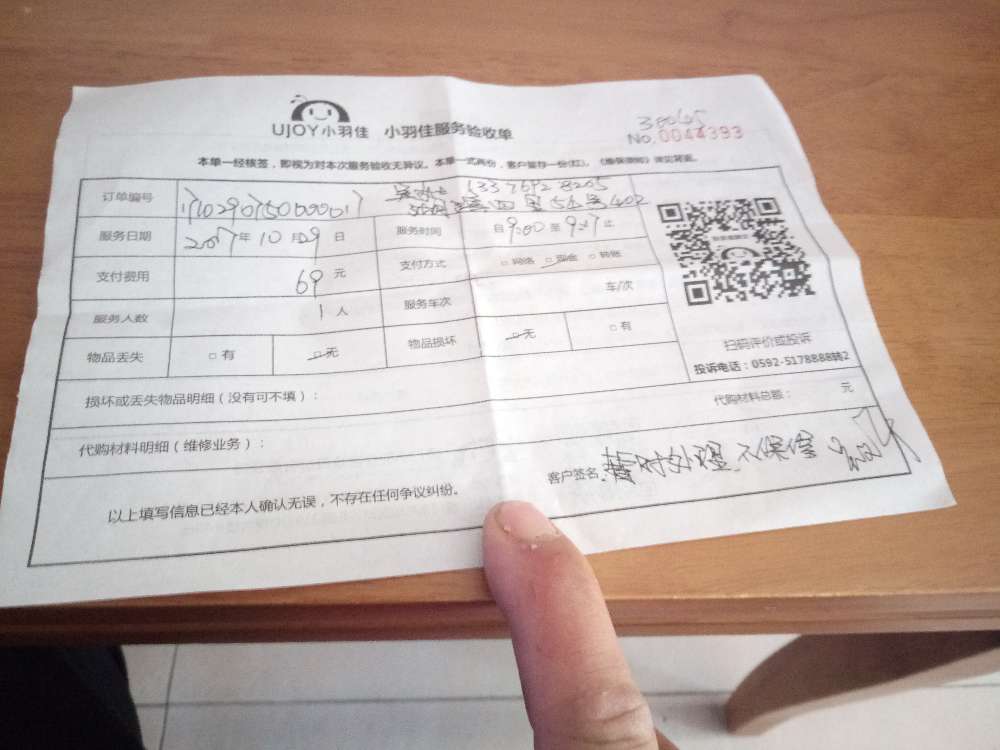 UJOY小羽佳 小羽佳服务验收单
30045
No.0044393
本单一经核签,即视为对本次服务验收无异议。本单一式两份,客户留存一份(红)。
订单编号 17102907500001 133 7692 8205
402
服务日期 2017年10月29日 服务时间 自9:00至9:17止
支付费用 69元 支付方式 □网络 □现金 □转账
服务人数 1人 服务车次 车/次
物品丢失 □有 □无 物品损坏 □无 □有
扫码评价或投诉
投诉电话:0592-5178888转2
损坏或丢失物品明细(没有可不填):
代购材料总额: 元
代购材料明细(维修业务):
客户签名 暂时处理、不保修
以上填写信息已经本人确认无误,不存在任何争议纠纷。